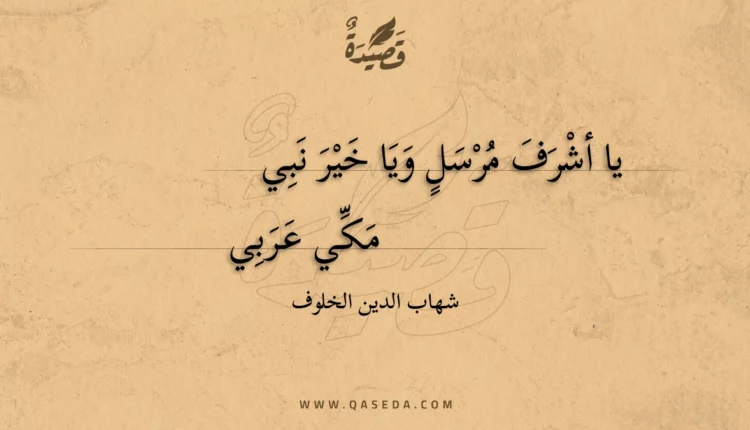 قَصِيْدَةٌ
يا أشْرَفَ مُرْسَلٍ وَيَا خَيْرَ نَبِي
مَكِّي عَرَبِي
شهاب الدين الخلوف
WWW.QASEDA.COM